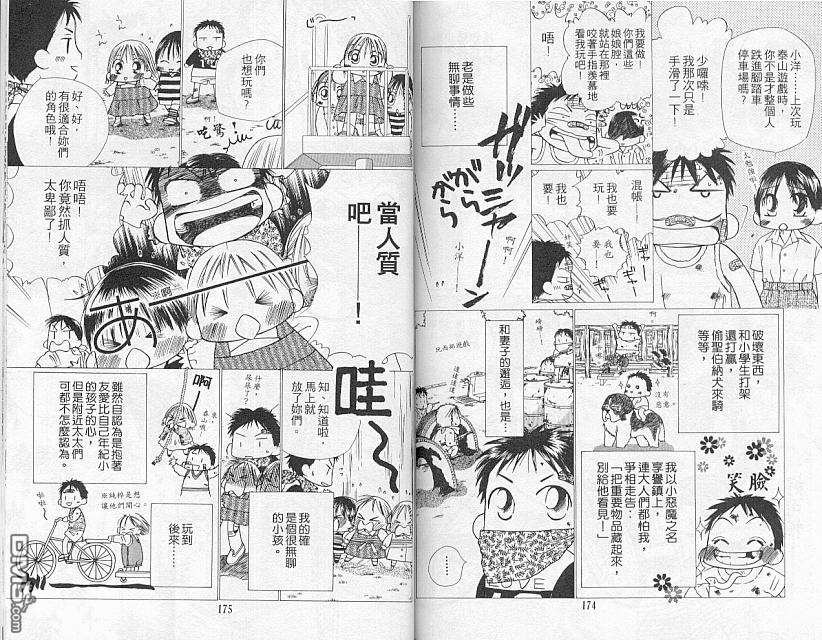 小洋⋯上次玩
泰山遊戲時，
你不是才整個人
跌進腳踏車
停車場嗎？
少囉嗦！
我那次只是
手滑了一下！
太勉強啦！
我要做！
你們這些
娘娘腔
就站在那裡
咬著手指羨慕地
看我玩吧！
唔！
混帳—
我也要
玩！
我也
要！
我也
要！
老是做些
無聊事情⋯
ガラ
がら
ミャーン
啊啊！
小洋！
破壞東西，
和小學生打架
還打贏，
偷聖伯納犬來騎
等等，
沒有
惡意。
笑臉
我以小惡魔之名
享譽鎮上，
連大人們都怕我，
爭相走告：
「把重要物品藏起來，
別給他看見！」
和妻子的邂逅，也是⋯
玩西部遊戲
噠噠噠
LOVE
174
你們
也想玩嗎？
啊！
吃驚
好、好，
有很適合妳們
的角色哦！
當人質
吧——！
唔唔！
你竟然抓人質，
太卑鄙了！
あ
哇～
知、知道啦，
馬上就
放了妳們。
什麼，
尿尿了？
我的確
是個很無聊
的小孩。
啊—
來，
泰山啊
玩到
後來⋯
雖然自認為是抱著
友愛比自己年紀小
的孩子的心，
但是附近太太們
可都不怎麼認為。
※純粹是想
讓他們開心。
啦
啦
175